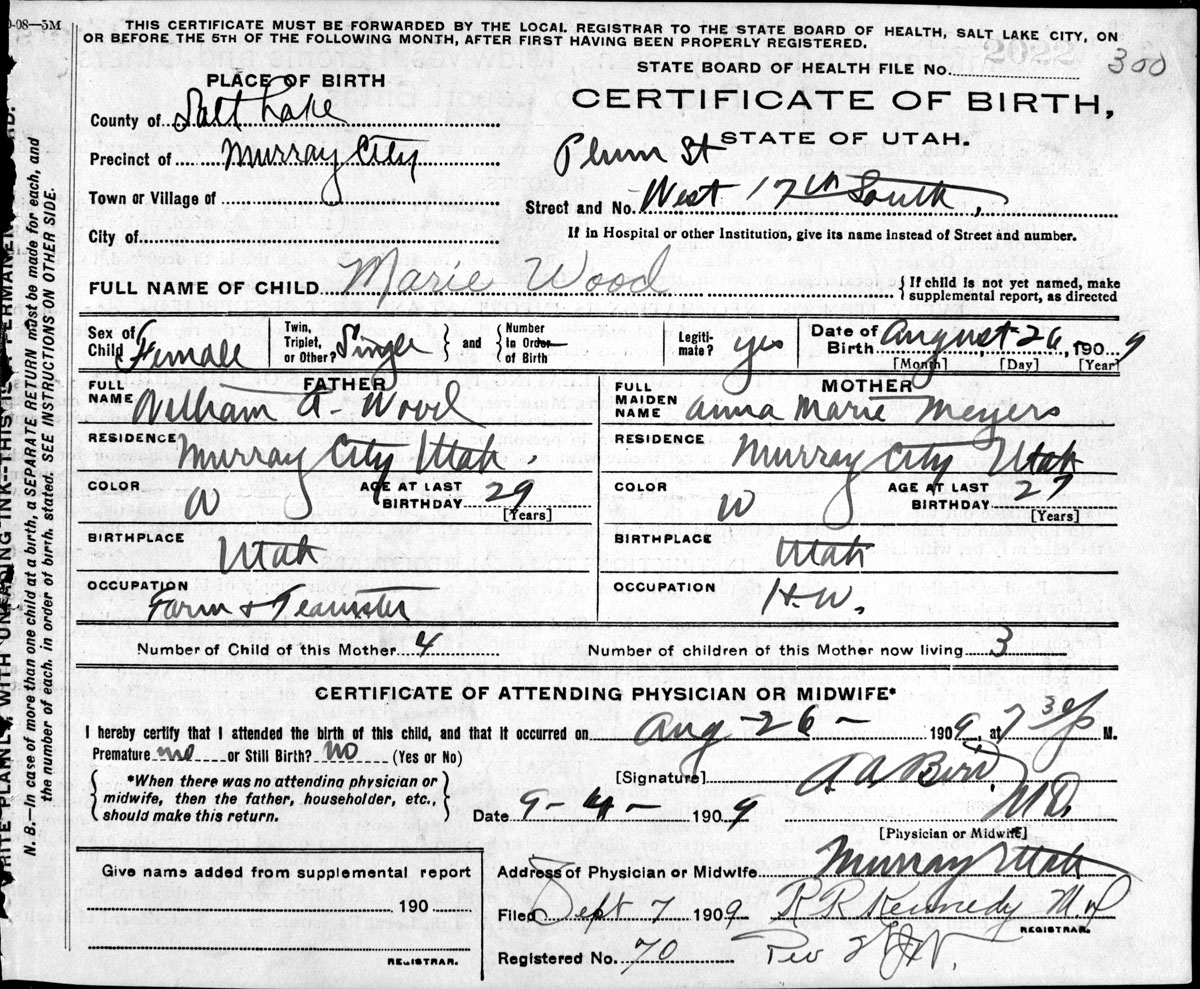 0-08—5M
THIS CERTIFICATE MUST BE FORWARDED BY THE LOCAL REGISTRAR TO THE STATE BOARD OF HEALTH, SALT LAKE CITY, ON
OR BEFORE THE 5TH OF THE FOLLOWING MONTH, AFTER FIRST HAVING BEEN PROPERLY REGISTERED.
STATE BOARD OF HEALTH FILE No. 300
PLACE OF BIRTH
CERTIFICATE OF BIRTH,
STATE OF UTAH.
County of Salt Lake
Precinct of Murray City
Plum St
Town or Village of
Street and No. West 17th South,
City of
If in Hospital or other Institution, give its name instead of Street and number.
FULL NAME OF CHILD Marie Wood { If child is not yet named, make
supplemental report, as directed
Sex of Child Female
Twin, Triplet, or Other? Single } and { Number In Order of Birth
Legiti-mate? yes
Date of Birth August 26, 1909
[Month] [Day] [Year]
FATHER
FULL NAME William A. Wood
RESIDENCE Murray City Utah.
COLOR W AGE AT LAST BIRTHDAY 29 [Years]
BIRTHPLACE Utah
OCCUPATION Farm & Teamster
MOTHER
FULL MAIDEN NAME Anna Marie Meyers
RESIDENCE Murray City Utah
COLOR W AGE AT LAST BIRTHDAY 27 [Years]
BIRTHPLACE Utah
OCCUPATION H.W.
Number of Child of this Mother 4 Number of children of this Mother now living 3
CERTIFICATE OF ATTENDING PHYSICIAN OR MIDWIFE*
I hereby certify that I attended the birth of this child, and that it occurred on Aug - 26 - 1909, at 7 30 p M.
Premature no or Still Birth? No (Yes or No)
{ *When there was no attending physician or
midwife, then the father, householder, etc.,
should make this return. }
[Signature] A A Bird, M D.
Date 9 - 4 - 1909
[Physician or Midwife]
Address of Physician or Midwife Murray Utah
Give name added from supplemental report
190
REGISTRAR.
Filed Sept 7 1909 R R Kennedy M.D
REGISTRAR.
Registered No. 70
WRITE PLAINLY, WITH UNFADING INK—THIS IS A PERMANENT RECORD.
N. B.—In case of more than one child at a birth, a SEPARATE RETURN must be made for each, and
the number of each, in order of birth, stated. SEE INSTRUCTIONS ON OTHER SIDE.